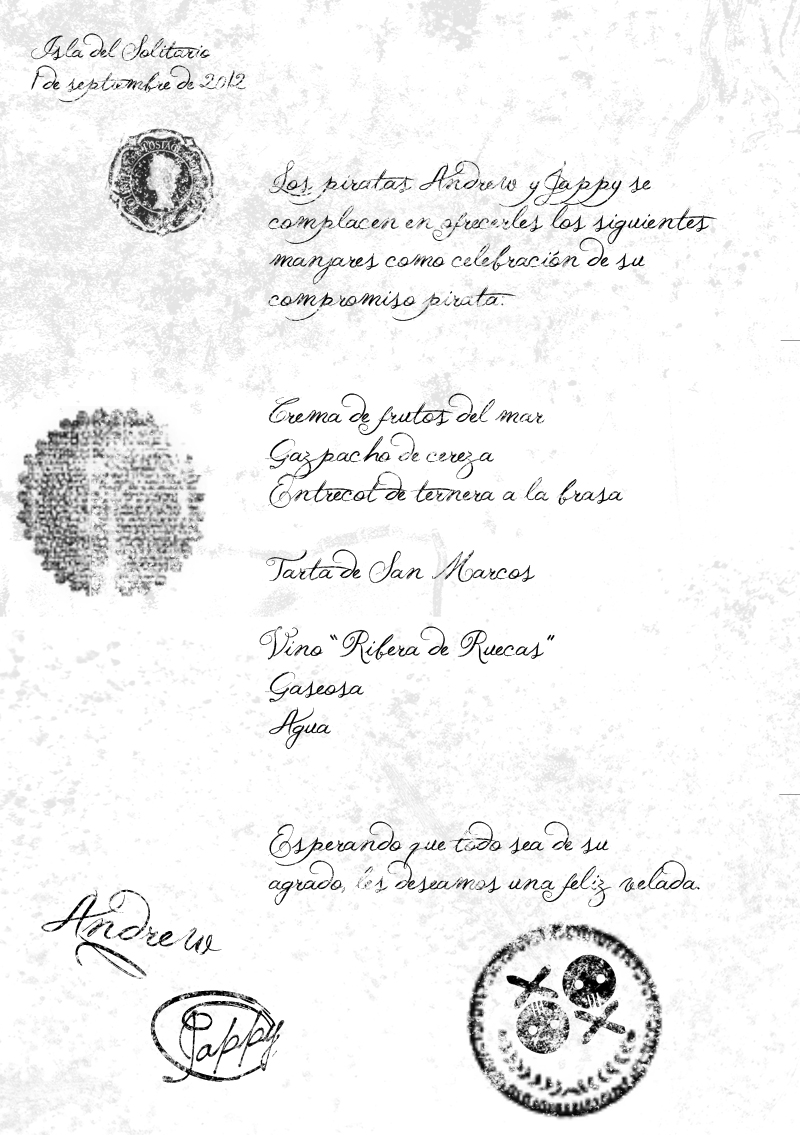 Isla del Solitario
1 de septiembre de 2012
POSTAGE
Los piratas Andrew y Jappy se
complacen en ofrecerles los siguientes
manjares como celebración de su
compromiso pirata:
Crema de frutos del mar
Gazpacho de cereza
Entrecot de ternera a la brasa
Tarta de San Marcos
Vino "Ribera de Ruecas"
Gaseosa
Agua
Esperando que todo sea de su
agrado, les deseamos una feliz velada.
Andrew
Jappy